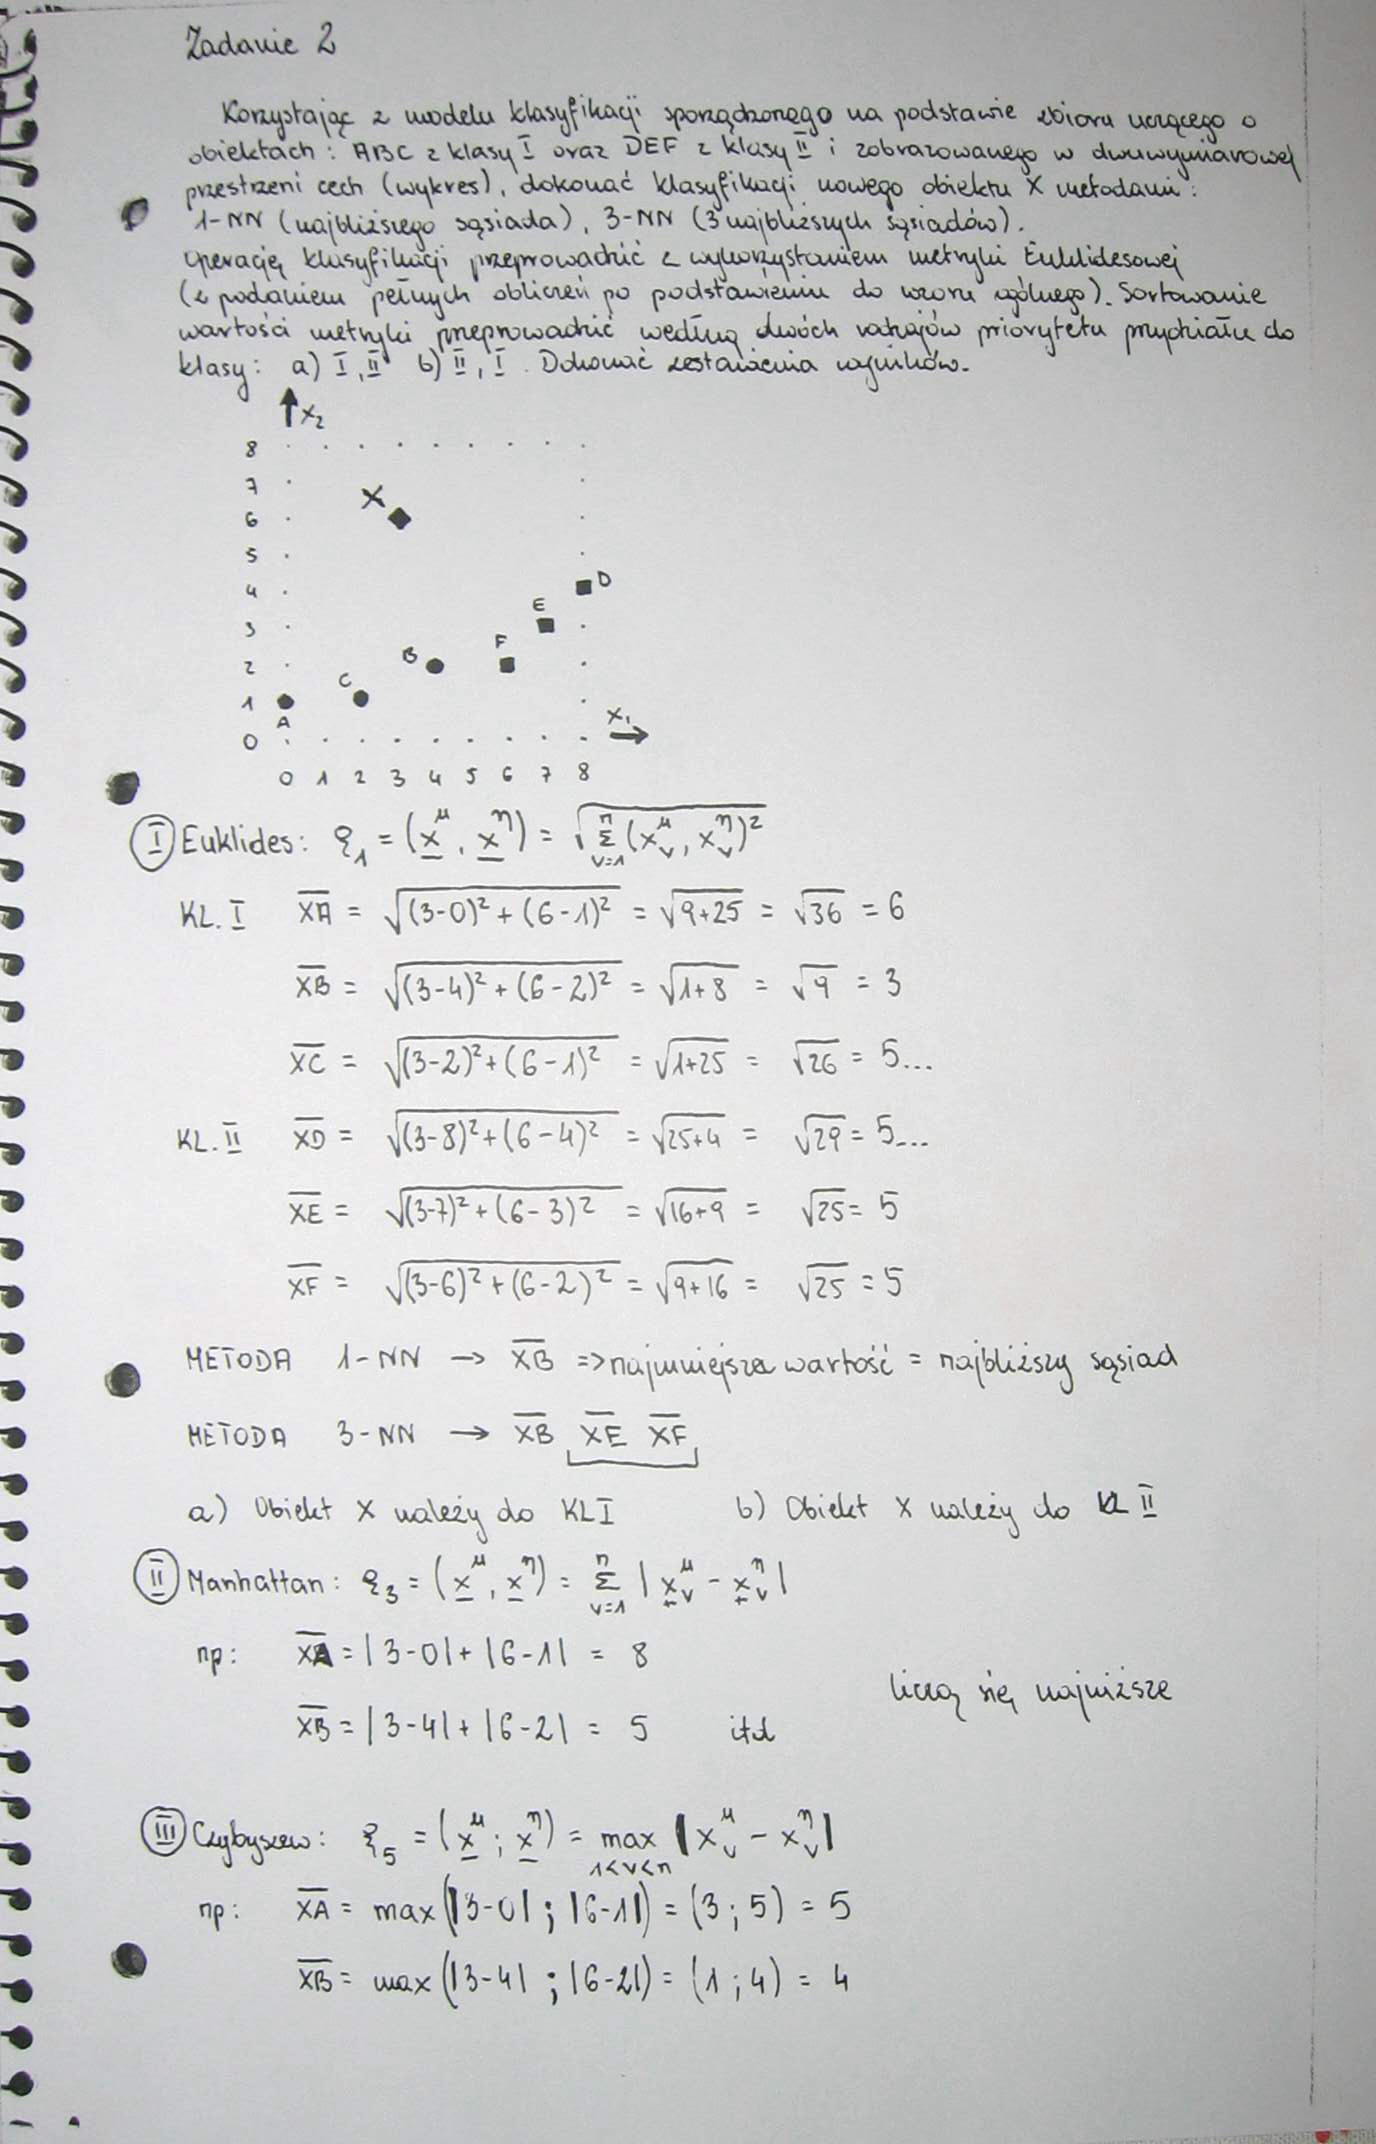 Zadanie 2
Korzystając z modelu klasyfikacji sporządzonego na podstawie zbioru uczącego o
obiektach: ABC z klasy I oraz DEF z klasy II i zobrazowanego w dwuwymiarowej
przestrzeni cech (wykres), dokonać klasyfikacji nowego obiektu X metodami:
1-NN (najbliższego sąsiada), 3-NN (3 najbliższych sąsiadów).
Operację klasyfikacji przeprowadzić z wykorzystaniem metryki Euklidesowej
(z podaniem pełnych obliczeń po podstawieniu do wzoru ogólnego). Sortowanie
wartości metryki przeprowadzić według dwóch rodzajów priorytetu przydziału do
klasy: a) I, II b) II, I. Dokonać zestawienia wyników.
X₂
8
7
X
6
5
4 D
E
3
F
2 B
C
1
A
X₁
0
0 1 2 3 4 5 6 7 8
I Euklides: ρ₁ = (x^μ, x^η) = √Σ_{v=1}^{n}(x_v^μ, x_v^η)²
KL. I XA = √(3-0)² + (6-1)² = √9+25 = √36 = 6
XB = √(3-4)² + (6-2)² = √1+8 = √9 = 3
XC = √(3-2)² + (6-1)² = √1+25 = √26 = 5...
KL. II XD = √(3-8)² + (6-4)² = √25+4 = √29 = 5...
XE = √(3-7)² + (6-3)² = √16+9 = √25 = 5
XF = √(3-6)² + (6-2)² = √9+16 = √25 = 5
METODA 1-NN → XB => najmniejsza wartość = najbliższy sąsiad
METODA 3-NN → XB XE XF
a) Obiekt X należy do KL I b) Obiekt X należy do KL II
II Manhattan: ρ₃ = (x^μ, x^η) = Σ_{v=1}^{n} |x_v^μ - x_v^η|
np: XA = |3-0| + |6-1| = 8
liczą się najniższe
XB = |3-4| + |6-2| = 5 itd
III Czybyszew: ρ₅ = (x^μ; x^η) = max_{1<v<n} |x_v^μ - x_v^η|
np: XA = max(|3-0| ; |6-1|) = (3 ; 5) = 5
XB = max(|3-4| ; |6-2|) = (1 ; 4) = 4